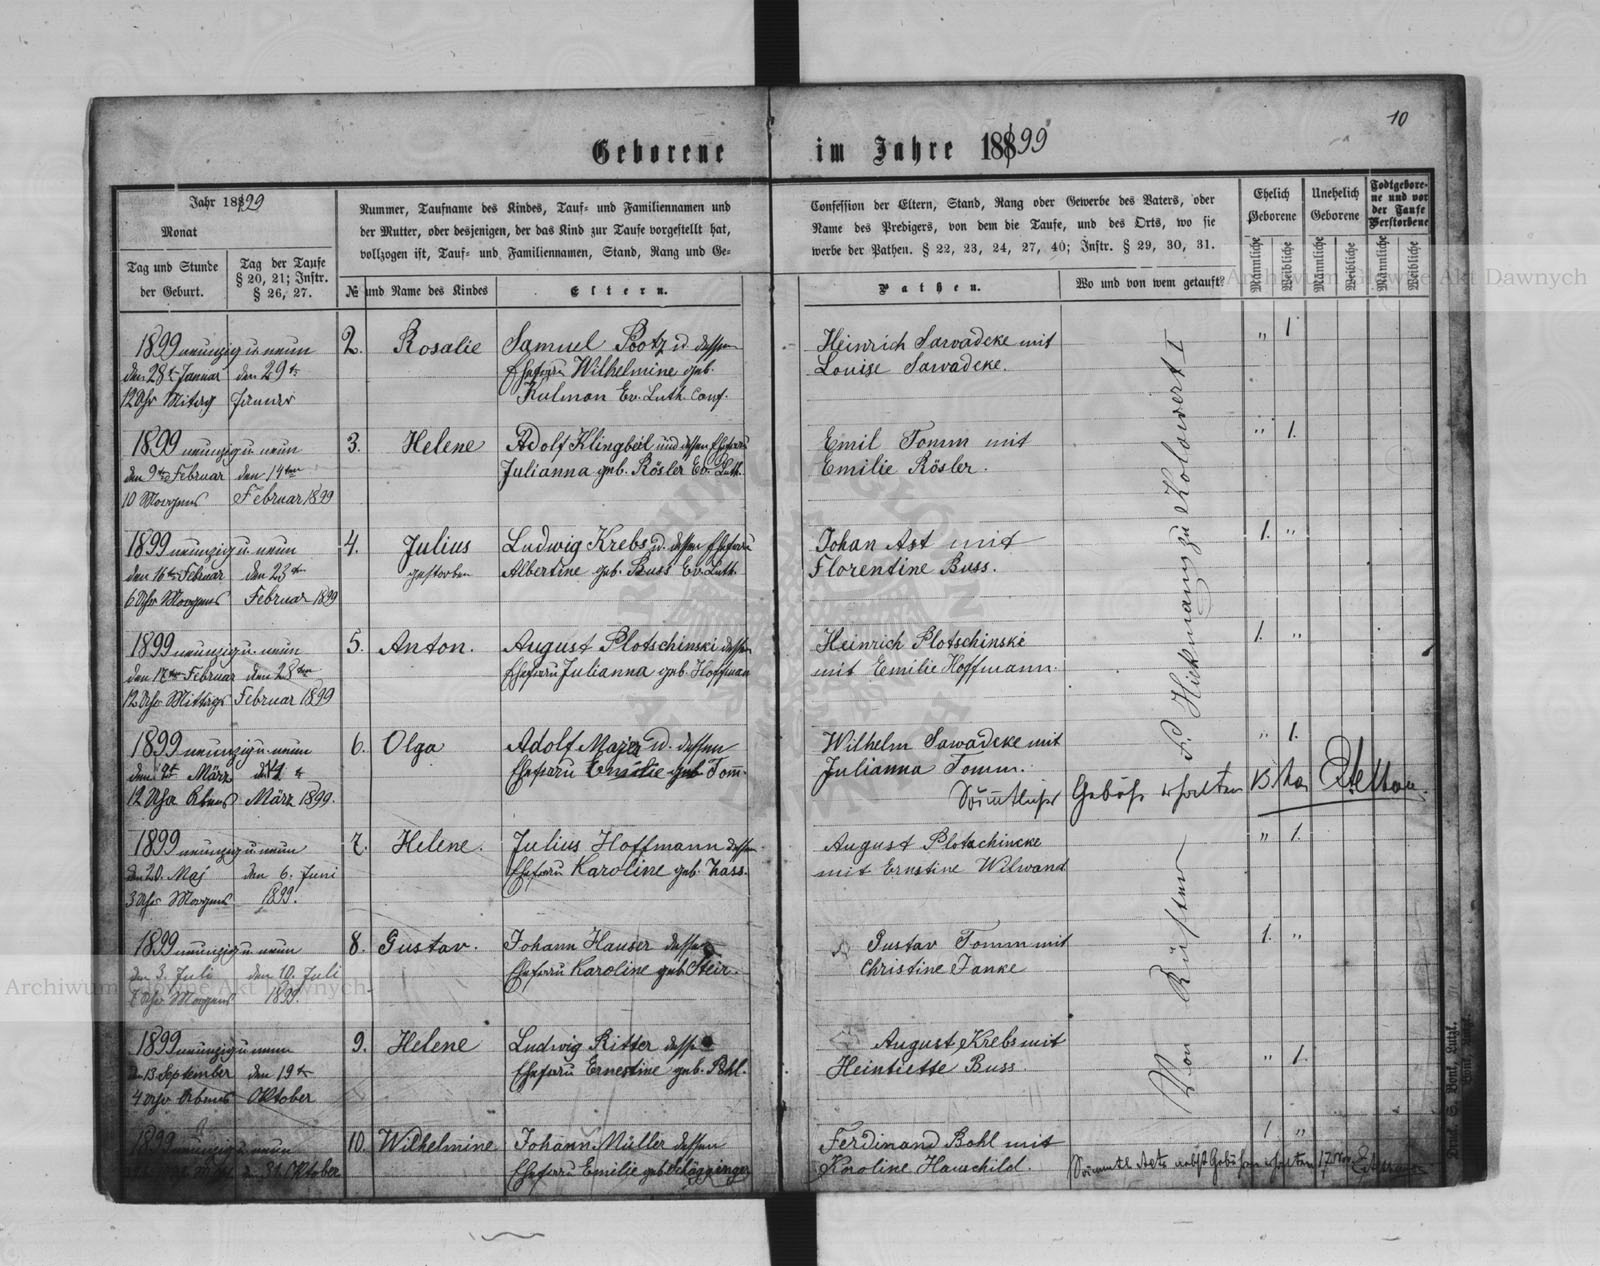 10
Geborene im Jahre 1899
Jahr 1899
Monat
Tag und Stunde
der Geburt.
Tag der Taufe
§ 20, 21; Instr.
§ 26, 27.
Nummer, Taufname des Kindes, Tauf- und Familiennamen und
der Mutter, oder desjenigen, der das Kind zur Taufe vorgestellt hat,
vollzogen ist, Tauf- und Familiennamen, Stand, Rang und Ge-
№ und Name des Kindes
Eltern.
Confession der Eltern, Stand, Rang oder Gewerbe des Vaters, oder
Name des Predigers, von dem die Taufe, und des Orts, wo sie
werbe der Pathen. § 22, 23, 24, 27, 40; Instr. § 29, 30, 31.
Pathen.
Wo und von wem getauft?
Ehelich
Geborene
Unehelich
Geborene
Todtgebore-
ne und vor
der Taufe
Verstorbene
Männliche
Weibliche
Männliche
Weibliche
Männliche
Weibliche
Archiwum Główne Akt Dawnych
1899 neunzig u. neun
den 28t Januar den 29ten
12 Uhr Mittag Januar
2. Rosalie
Samuel Bootz u. dessen
Ehefrau Wilhelmine geb.
Kulman Ev. Luth. Conf.
Heinrich Sawadcke mit
Louise Sawadcke.
" 1
1899 neunzig u. neun
den 9ten Februar den 14ten
10 Morgens Februar 1899
3. Helene
Adolf Klingbeil und dessen Ehefrau
Julianna geb. Rösler Ev. Luth.
Emil Tomm mit
Emilie Rösler.
" 1.
1899 neunzig u. neun
den 16ten Februar den 23ten
6 Uhr Morgens Februar 1899
4. Julius
gestorben
Ludwig Krebs u. dessen Ehefrau
Albertine geb. Buss Ev. Luth.
Johan Ast mit
Florentine Buss.
1. "
1899 neunzig u. neun
den 17ten Februar den 28ten
12 Uhr Mittags Februar 1899
5. Anton.
August Plotschinski dessen
Ehefrau Julianna geb. Hoffman
Heinrich Plotschinski
mit Emilie Hoffmann.
1. "
1899 neunzig u. neun
März
12 Uhr Abends März 1899.
6. Olga
Adolf Majer u. dessen
Ehefrau Emilie geb. Tomm.
Wilhelm Sawadcke mit
Julianna Tomm.
" 1.
Sämmtliche Gebühr erhalten
1899 neunzig u. neun
den 20. Maj den 6. Juni
3 Uhr Morgens 1899.
7. Helene.
Julius Hoffmann dessen
Ehefrau Karoline geb. Zass.
August Plotschincke
mit Ernestine Wilwand
" 1.
1899 neunzig u. neun
den 3. Juli den 10. Juli
Uhr Morgens 1899.
8. Gustav.
Johann Hauser dessen
Ehefrau Karoline geb. Steir.
Gustav Tomm mit
Christine Janke
1. "
Archiwum Główne Akt Dawnych
1899 neunzig u. neun
den 13 September den 19ten
4 Uhr Abends Oktober
9. Helene
Ludwig Ritter dessen
Ehefrau Ernestine geb. Pohl.
August Krebs mit
Heinriette Buss
" 1.
1899 neunzig u. neun
31. Oktober
10. Wilhelmine
Johann Müller dessen
Ehefrau Emilie geb.
Ferdinand Bohl mit
Karoline Hauschild.
1 "
Gebühren erhalten 17 Nov.
Von Küster F. Hickmann zu Kolowert I
ARCHIWUM GŁÓWNE AKT DAWNYCH